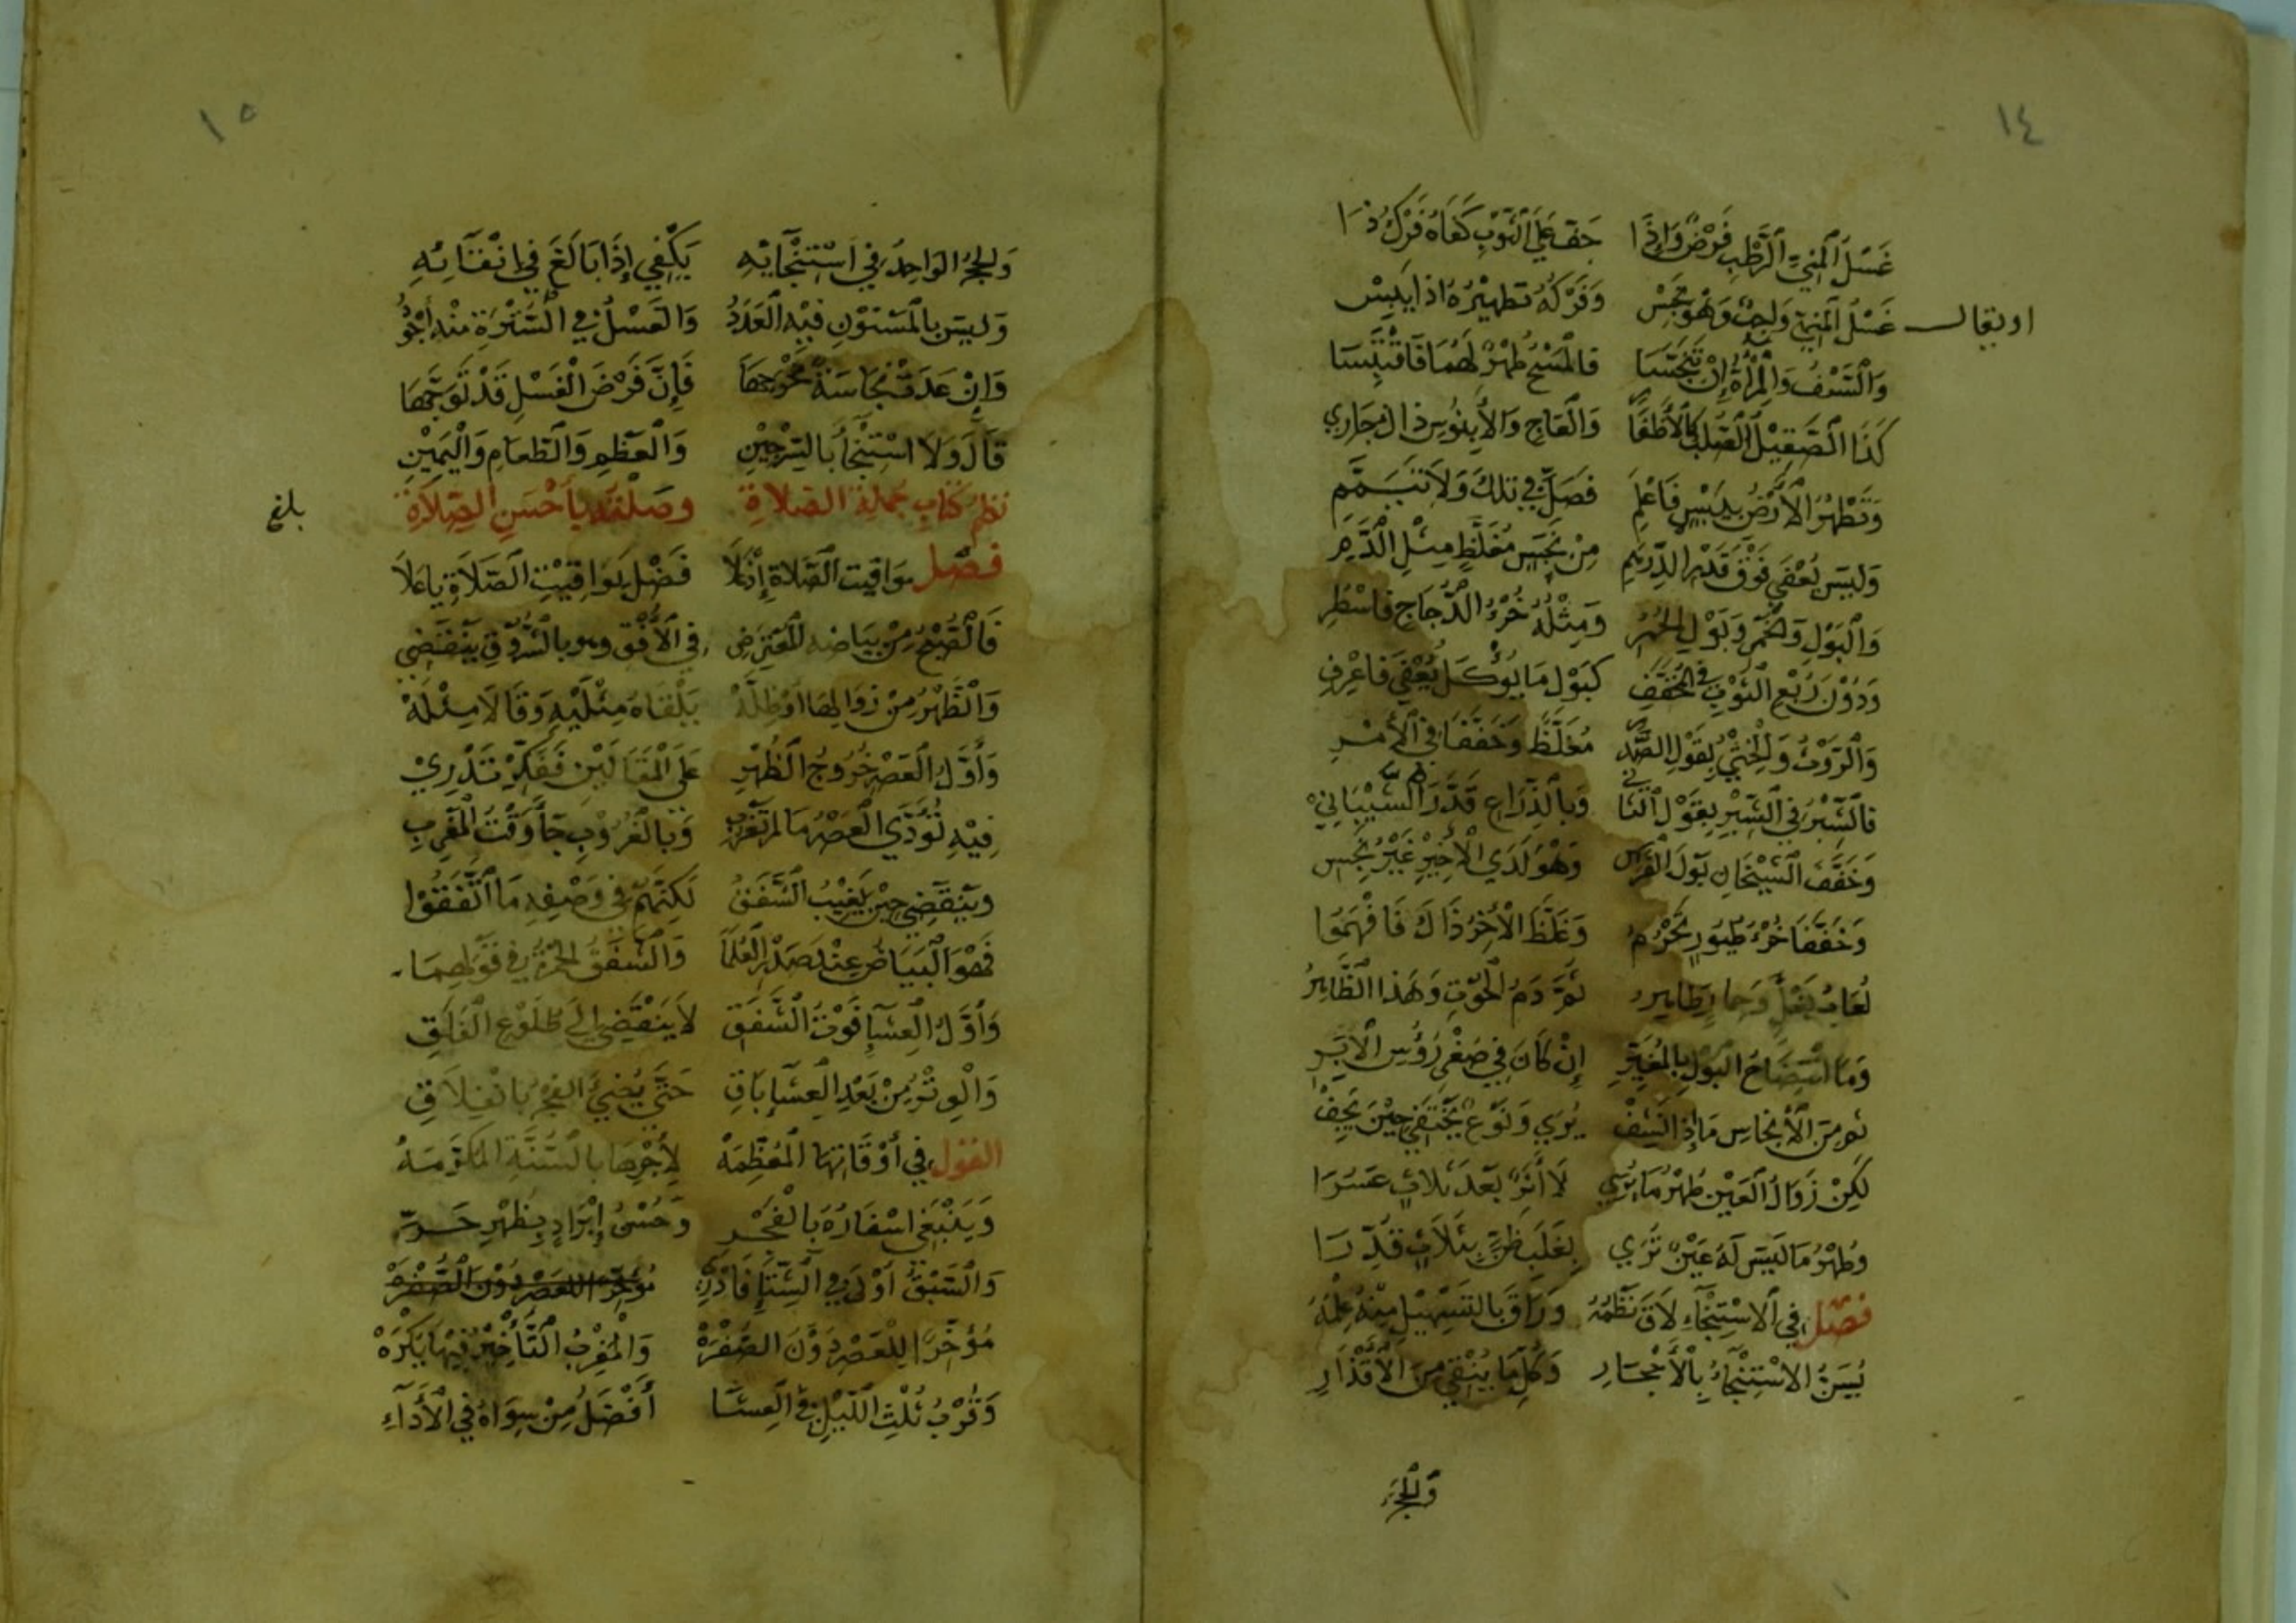 ١٤
غَسْلُ الْمَنِيِّ الرَّطْبِ فَرْضٌ وَاِذَا جَفَّ عَلَى الثَّوْبِ كَفَاهُ فَرْكُ ذَا
او يقال غَسْلُ الْمَنِيِّ وَاجِبٌ وَهْوَ نَجِسْ وَفَرْكُهُ تَطْهِيْرُهُ اذا يَبِسْ
وَالسَّيْفُ وَالْمِرْآةُ إِنْ تَنَجَّسَا فالْمَسْحُ طُهْرٌ لَهُمَا فَاقْتَبِسَا
كَذَا الصَّقِيْلُ الصُّلْبُ كَالْأَظْفَارِ وَالْعَاجِ وَالْأَبِنُوسِ ذا الْمَجَارِي
وَتَطْهُرُ الْأَرْضُ بِيُبْسٍ فَاعْلَمِ فَصَلِّ فِي تِلْكَ وَلَا تَيَمَّمِ
وَلَيْسَ يُعْفَى فَوْقَ قَدْرِ الدِّرْهَمِ مِنْ نَجَسٍ مُغَلَّظٍ مِثْلِ الدَّمِ
وَالْبَوْلِ وَالْخَمْرِ وَبَوْلِ الْحُمُرِ وَمِثْلُهُ خُرْءُ الدَّجَاجِ فَاسْطُرِ
وَدُوْنَ رُبْعِ الثَّوْبِ فِي الْمُخَفَّفِ كَبَوْلِ مَا يُؤْكَلُ يُعْفَى فَاعْرِفِ
وَالرَّوْثُ وَالْخِثْيُ بِقَوْلِ الصَّدْرِ مُغَلَّظٌ وَخَفَّفَا فِي الْأَمْرِ
فالشِّبْرُ فِي الشِّبْرِ بِقَوْلِ الثَّانِي وَبِالذِّرَاعِ قَدَّرَ الشَّيْبَانِيْ
وَخَفَّفَ الشَّيْخَانِ بَوْلَ الْفَرَسِ وَهْوَ لَدَى الْأَخِيْرِ غَيْرُ نَجِسِ
وَخَفَّفَا خُرْءَ طُيُورٍ تَحْرُمُ وَغَلَّظَ الْأَخِرُ ذَاكَ فَافْهَمُوا
لُعَابُ بَغْلٍ وَحِمَارٍ طَاهِرُ ثُمَّ دَمُ الْحُوْتِ وَهَذَا الظَّاهِرُ
وَمَا انْتِضَاحُ الْبَوْلِ بِالْمُغَيِّرِ إِنْ كَانَ فِي صُغْرِ رُؤُسِ الْأِبَرِ
ثُمَّ مِنَ الْأَنْجَاسِ مَا إِذَا نَشِفْ يُرَى وَنَوْعٌ يَخْتَفِي حِيْنَ يَجِفْ
لَكِنْ زَوَالُ الْعَيْنِ طُهْرُ مَا يُرَى لَا أَثَرٌ بَعْدَ ثَلَاثٍ عَسُرَا
وَطُهْرُ مَا لَيْسَ لَهُ عَيْنٌ تُرَى بِغَلَبِ ظَنٍّ بِثَلَاثٍ قُدِّرَا
فَصْلٌ فِي الْاسْتِنْجَاءِ لَاقَ نَظْمُهُ وَرَاقَ بِالتَّسْهِيْلِ مِنْهُ عِلْمُهُ
يُسَنُّ الْاسْتِنْجَاءُ بِالْأَحْجَارِ وَكُلِّ مَا يُنْقِي مِنَ الْأَقْذَارِ
وَالْحَجَرُ
١٥
وَالْحَجَرُ الْوَاحِدُ فِي اسْتِنْجَائِهِ يَكْفِي إِذَا بَالَغَ فِي إِنْقَائِهِ
وَلَيْسَ بِالْمَسْنُوْنِ فِيْهِ الْعَدَدُ وَالْغَسْلُ فِي السُّتْرَةِ مِنْهُ أَجْوَدُ
وَإِنْ عَدَتْ نَجَاسَةٌ مَخْرَجَهَا فَإِنَّ فَرْضَ الْغَسْلِ قَدْ تَوَجَّهَا
قَالَ وَلَا اسْتِنْجَأُ بِالسِّرْجِيْنِ وَالْعَظْمِ وَالطَّعَامِ وَالْيَمِيْنِ
نَظْمُ كِتَابِ جُمْلَةِ الصَّلَاةِ وصَلْتُهُ بِأَحْسَنِ الصِّلَاةِ بلغ
فَصْل مَوَاقِيْتِ الصَّلَاةِ إِذْ عَلَا فَضْلُ مَوَاقِيْتِ الصَّلَاةِ يا عَلَا
فَالصُّبْحُ مِنْ بَيَاضِهِ الْمُعْتَرِضِ فِي الْأُفْقِ وهو بِالشُّرُوْقِ يَنْقَضِي
وَالظُّهْرُ مِنْ زَوَالِهَا أَوْ ظِلَّهْ يَلْقَاهُ مِثْلَيْهِ وَقَالَا مِثْلَهْ
وَأَوَّلُ الْعَصْرِ خُرُوْجُ الظُّهْرِ عَلَى الْمَقَالَيْنِ فَفَكِّرْ تَدْرِيْ
فِيْهِ تُؤَدَّى الْعَصْرُ مَا لَمْ تَغْرُبِ وَبِالْغُرُوْبِ جَأَ وَقْتُ الْمَغْرِبِ
وَيَنْقَضِي حِيْنَ يَغِيْبُ الشَّفَقُ لَكِنَّهُمْ فِي وَصْفِهِ مَا اتَّفَقُوْا
فَهْوَ الْبَيَاضُ عِنْدَ صَدْرِ الْعُلَمَا وَالشَّفَقُ الْحُمْرَةُ فِي قَوْلِهِمَا
وَأَوَّلُ الْعِشَاءِ فَوْتُ الشَّفَقِ لَا يَنْقَضِي إِلَى طُلُوْعِ الْفَلَقِ
وَالْوِتْرُ مِنْ بَعْدِ الْعِشَاءِ بَاقِ حَتَّى يُضِيْءَ الْفَجْرُ بِانْفِلَاقِ
الْقَوْلُ فِي أَوْقَاتِهَا الْمُعَظَّمَهْ لِأَجْرِهَا بِالسُّنَّةِ الْمُكَرَّمَهْ
وَيَنْبَغِي اسْفَارُهُ بِالْفَجْرِ وَحُسْنُ إِبْرَادٍ بِظُهْرِ حَرِّ
وَالسَّبْقُ أَوْلَى فِي الشِّتَاءِ فَادْرِهْ مُؤَخِّرًا لِلْعَصْرِ دُوْنَ الصُّفْرَهْ
مُؤَخِّرًا لِلْعَصْرِ دُوْنَ الصُّفْرَهْ وَالْمَغْرِبُ التَّأْخِيْرُ فِيْهَا يُكْرَهْ
وَقُرْبُ ثُلْثِ اللَّيْلِ فِي الْعِشَاءِ أَفْضَلُ مِنْ سِوَاهُ فِي الْأَدَآءِ